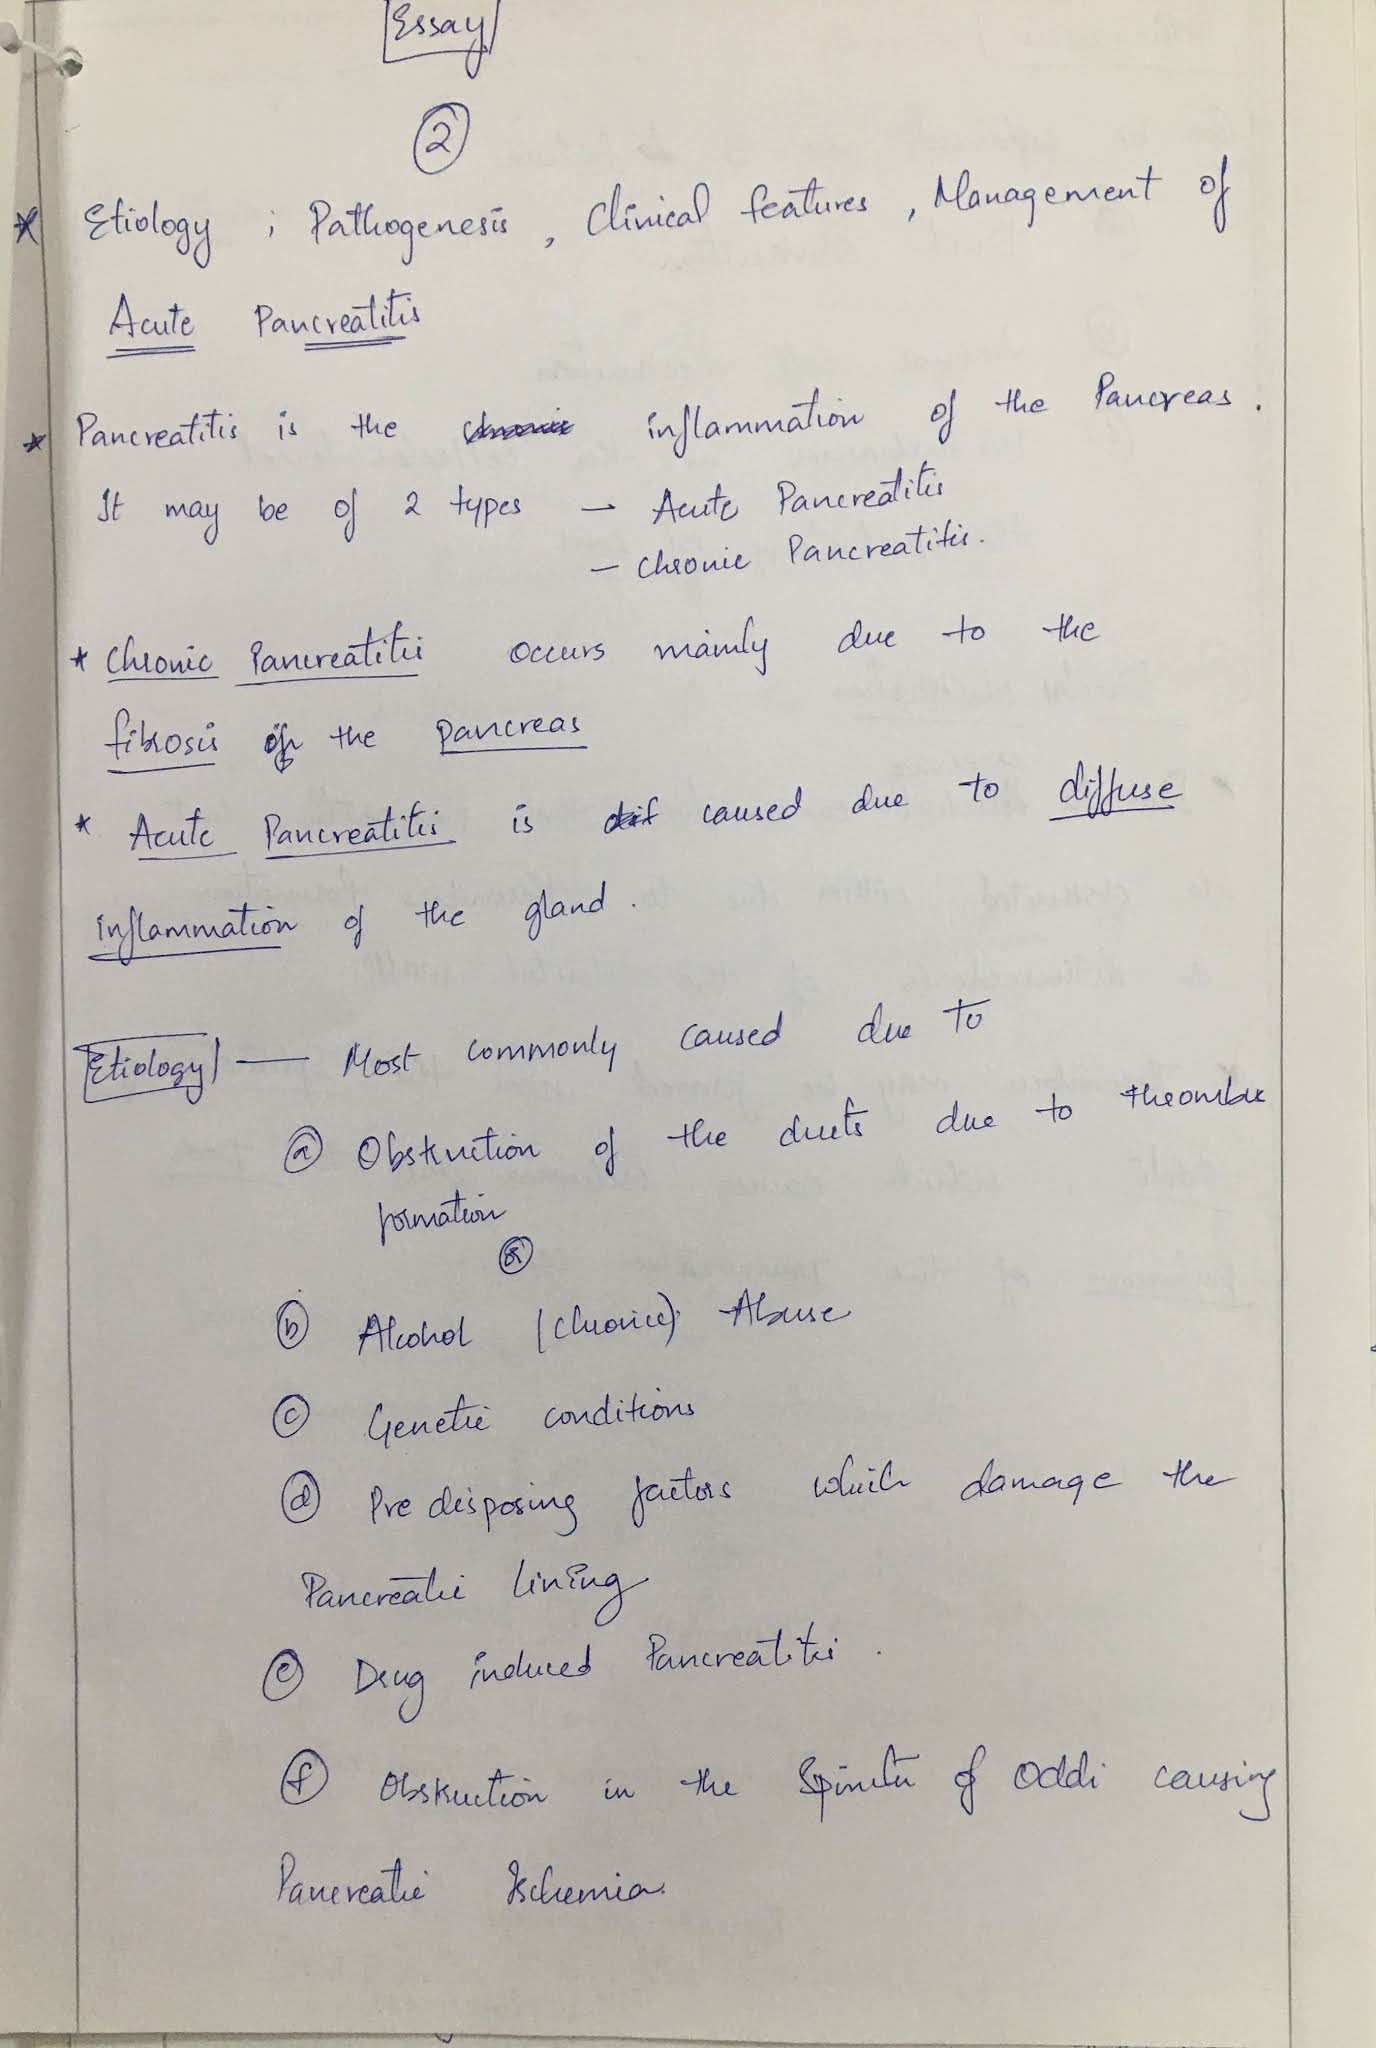 Essay
2
* Etiology ; Pathogenesis , Clinical features , Management of
Acute Pancreatitis
* Pancreatitis is the chronic inflammation of the Pancreas .
It may be of 2 types — Acute Pancreatitis
— Chronic Pancreatitis .
* Chronic Pancreatitis occurs mainly due to the
fibrosis of the Pancreas
* Acute Pancreatitis is dif caused due to diffuse
inflammation of the gland .
Etiology — Most commonly caused due to
a Obstruction of the ducts due to
formation
b Alcohol (chronic) Abuse
c Genetic conditions
d Pre disposing factors which damage the
Pancreatic lining
e Drug induced Pancreatitis .
f Obstruction in the of Oddi causing
Pancreatic Ischemia .